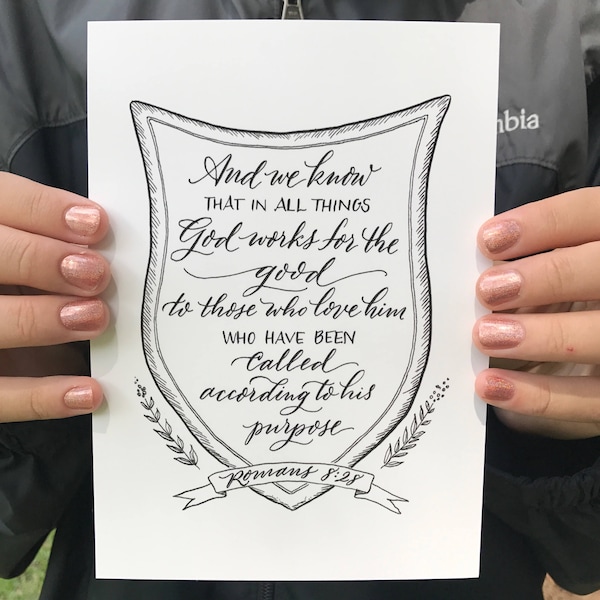 And we know
THAT IN ALL THINGS
God works for the
good
to those who love him
WHO HAVE BEEN
called
according to his
purpose
Romans 8:28
mbia